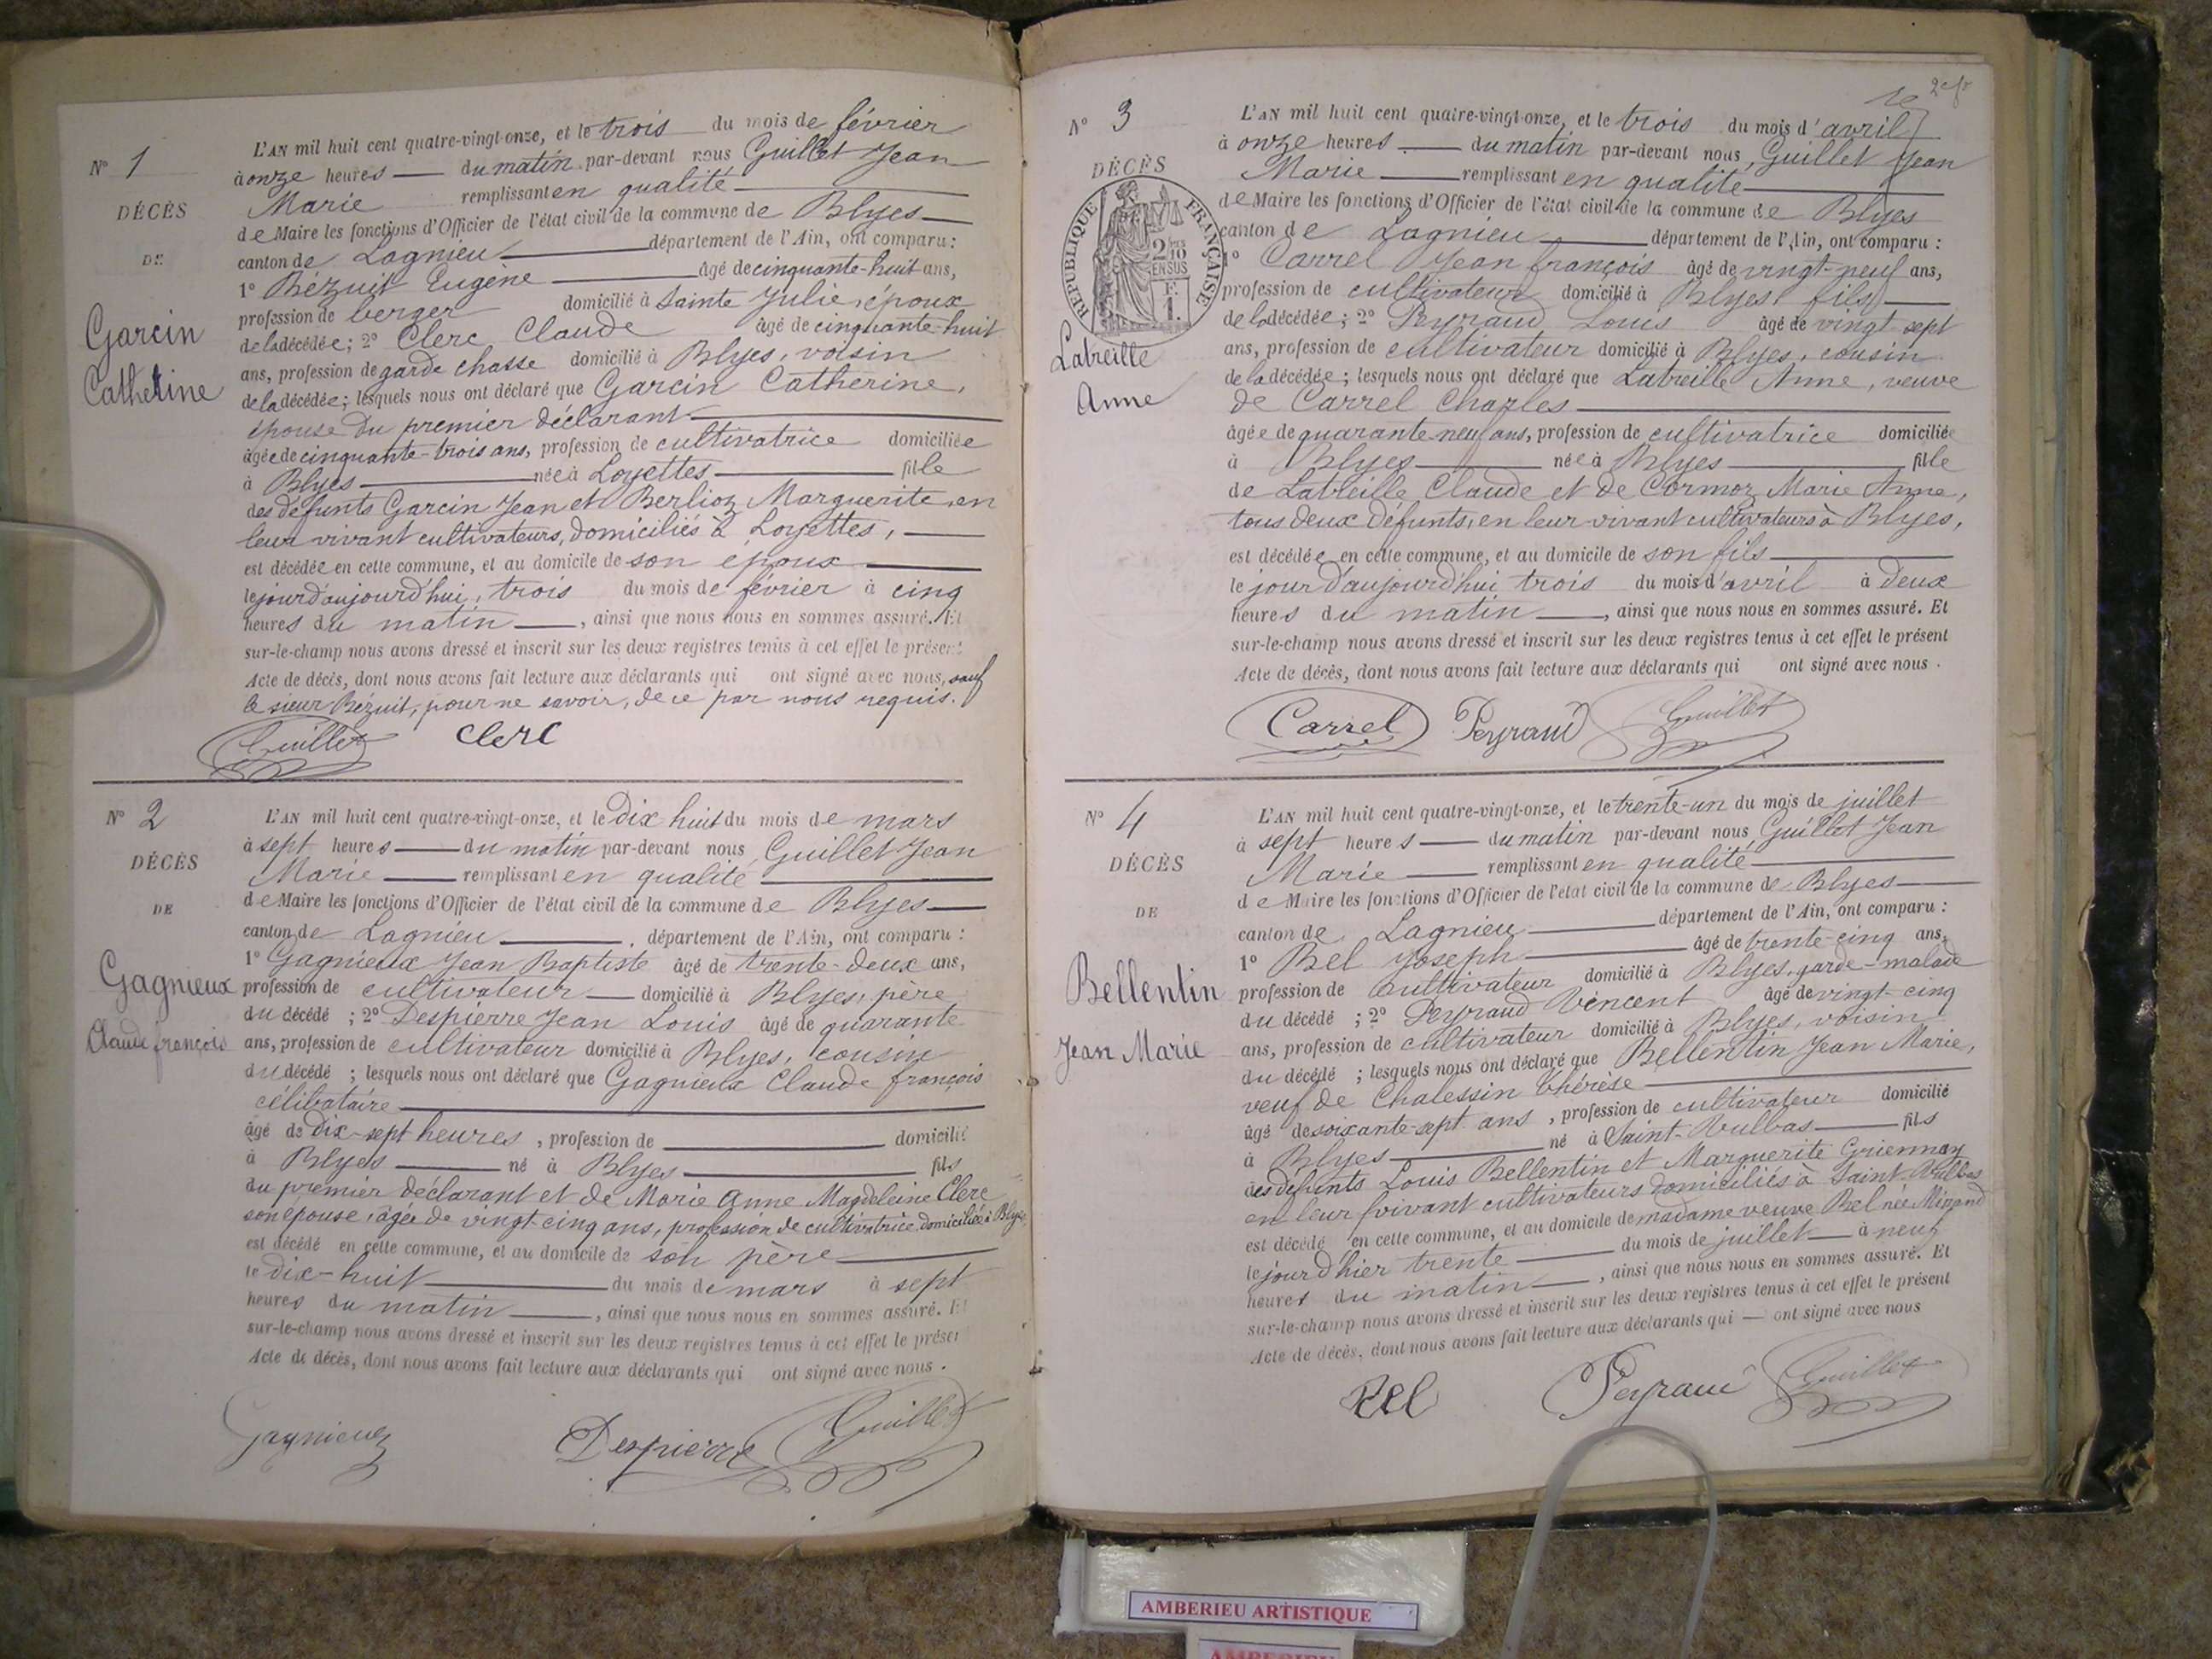 N° 1
DÉCÈS
DE
Garcin
Catherine
L'AN mil huit cent quatre-vingt-onze, et le trois du mois de février
à onze heures du matin par-devant nous Guillet Jean
Marie remplissant en qualité
de Maire les fonctions d'Officier de l'état civil de la commune de Blyes
canton de Lagnieu département de l'Ain, ont comparu :
1° Bézuit Eugène âgé de cinquante-huit ans,
profession de berger domicilié à Sainte Julie, époux
de la décédée ; 2° Clerc Claude âgé de cinquante-huit
ans, profession de garde chasse domicilié à Blyes, voisin
de la décédée ; lesquels nous ont déclaré que Garcin Catherine,
épouse du premier déclarant
âgée de cinquante-trois ans, profession de cultivatrice domiciliée
à Blyes née à Loyettes fille
des défunts Garcin Jean et Berlioz Marguerite, en
leur vivant cultivateurs, domiciliés à Loyettes,
est décédée en cette commune, et au domicile de son époux
le jour d'aujourd'hui, trois du mois de février à cinq
heures du matin, ainsi que nous nous en sommes assuré. Et
sur-le-champ nous avons dressé et inscrit sur les deux registres tenus à cet effet le présent
Acte de décès, dont nous avons fait lecture aux déclarants qui ont signé avec nous, sauf
le sieur Bézuit, pour ne savoir, de ce par nous requis.
Guillet Clerc
N° 2
DÉCÈS
DE
Gagnieux
Claude françois
L'AN mil huit cent quatre-vingt-onze, et le dix huit du mois de mars
à sept heures du matin par-devant nous Guillet Jean
Marie remplissant en qualité
de Maire les fonctions d'Officier de l'état civil de la commune de Blyes
canton de Lagnieu, département de l'Ain, ont comparu :
1° Gagnieux Jean Baptiste âgé de trente-deux ans,
profession de cultivateur domicilié à Blyes, père
du décédé ; 2° Despierre Jean Louis âgé de quarante
ans, profession de cultivateur domicilié à Blyes, cousin
du décédé ; lesquels nous ont déclaré que Gagnieux Claude françois
célibataire
âgé de dix-sept heures, profession de domicilié
à Blyes né à Blyes fils
du premier déclarant et de Marie Anne Magdeleine Clerc
son épouse, âgée de vingt-cinq ans, profession de cultivatrice, domiciliée à Blyes
est décédé en cette commune, et au domicile de son père
le dix-huit du mois de mars à sept
heures du matin, ainsi que nous nous en sommes assuré. Et
sur-le-champ nous avons dressé et inscrit sur les deux registres tenus à cet effet le présen
Acte de décès, dont nous avons fait lecture aux déclarants qui ont signé avec nous.
Gagnieux Despierre Guillet
N° 3
DÉCÈS
RÉPUBLIQUE FRANÇAISE
2/10
EN SUS
F.
1.
Latreille
Anne
L'AN mil huit cent quatre-vingt-onze, et le trois du mois d'avril
à onze heures du matin par-devant nous, Guillet Jean
Marie remplissant en qualité
de Maire les fonctions d'Officier de l'état civil de la commune de Blyes
canton de Lagnieu département de l'Ain, ont comparu :
1° Carrel Jean françois âgé de vingt-neuf ans,
profession de cultivateur domicilié à Blyes, fils
de la décédée ; 2° Peyraud Louis âgé de vingt-sept
ans, profession de cultivateur domicilié à Blyes, cousin
de la décédée ; lesquels nous ont déclaré que Latreille Anne, veuve
de Carrel Charles
âgée de quarante-neuf ans, profession de cultivatrice domiciliée
à Blyes née à Blyes fille
de Latreille Claude et de Cormoz Marie Anne,
tous deux défunts, en leur vivant cultivateurs à Blyes,
est décédée en cette commune, et au domicile de son fils
le jour d'aujourd'hui trois du mois d'avril à deux
heures du matin, ainsi que nous nous en sommes assuré. Et
sur-le-champ nous avons dressé et inscrit sur les deux registres tenus à cet effet le présent
Acte de décès, dont nous avons fait lecture aux déclarants qui ont signé avec nous.
Carrel Peyraud Guillet
N° 4
DÉCÈS
DE
Bellentin
Jean Marie
L'AN mil huit cent quatre-vingt-onze, et le trente-un du mois de juillet
à sept heures du matin par-devant nous Guillet Jean
Marie remplissant en qualité
de Maire les fonctions d'Officier de l'état civil de la commune de Blyes
canton de Lagnieu département de l'Ain, ont comparu :
1° Bel Joseph âgé de trente-cinq ans,
profession de cultivateur domicilié à Blyes, garde-malade
du décédé ; 2° Peyraud Vincent âgé de vingt-cinq
ans, profession de cultivateur domicilié à Blyes, voisin
du décédé ; lesquels nous ont déclaré que Bellentin Jean Marie,
veuf de Chalessin Thérèse
âgé de soixante-sept ans, profession de cultivateur domicilié
à Blyes né à Saint-Vulbas fils
des défunts Louis Bellentin et Marguerite Griennay
en leur vivant cultivateurs domiciliés à Saint-Vulbas
est décédé en cette commune, et au domicile de madame veuve Bel née
le jour d'hier trente du mois de juillet à neuf
heures du matin, ainsi que nous nous en sommes assuré. Et
sur-le-champ nous avons dressé et inscrit sur les deux registres tenus à cet effet le présent
Acte de décès, dont nous avons fait lecture aux déclarants qui ont signé avec nous
Bel Peyraud Guillet
AMBERIEU ARTISTIQUE
AMBERIEU